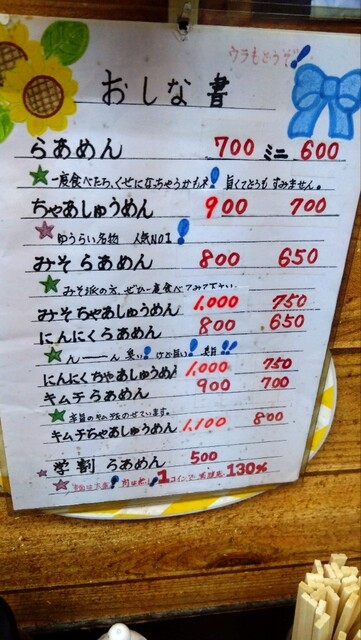 ウラもどうぞ!
おしな書
らあめん 700 ミニ 600
一度食べたら、くせになっちゃうかもネ! 旨くてどうも すみません。
ちゃあしゅうめん 900 700
ゆうらい名物 人気NO1!
みそらあめん 800 650
みそ派の方、ぜひ一度食べてみて下さい。
みそちゃあしゅうめん 1,000 750
にんにくらあめん 800 650
ん——ん 臭い! けど旨い! !!
にんにくちゃあしゅうめん 1,000 750
キムチらあめん 900 700
本場のキムチがのせています。
キムチちゃあしゅうめん 1,100 800
学割 らあめん 500
1コインで 満腹度 130%